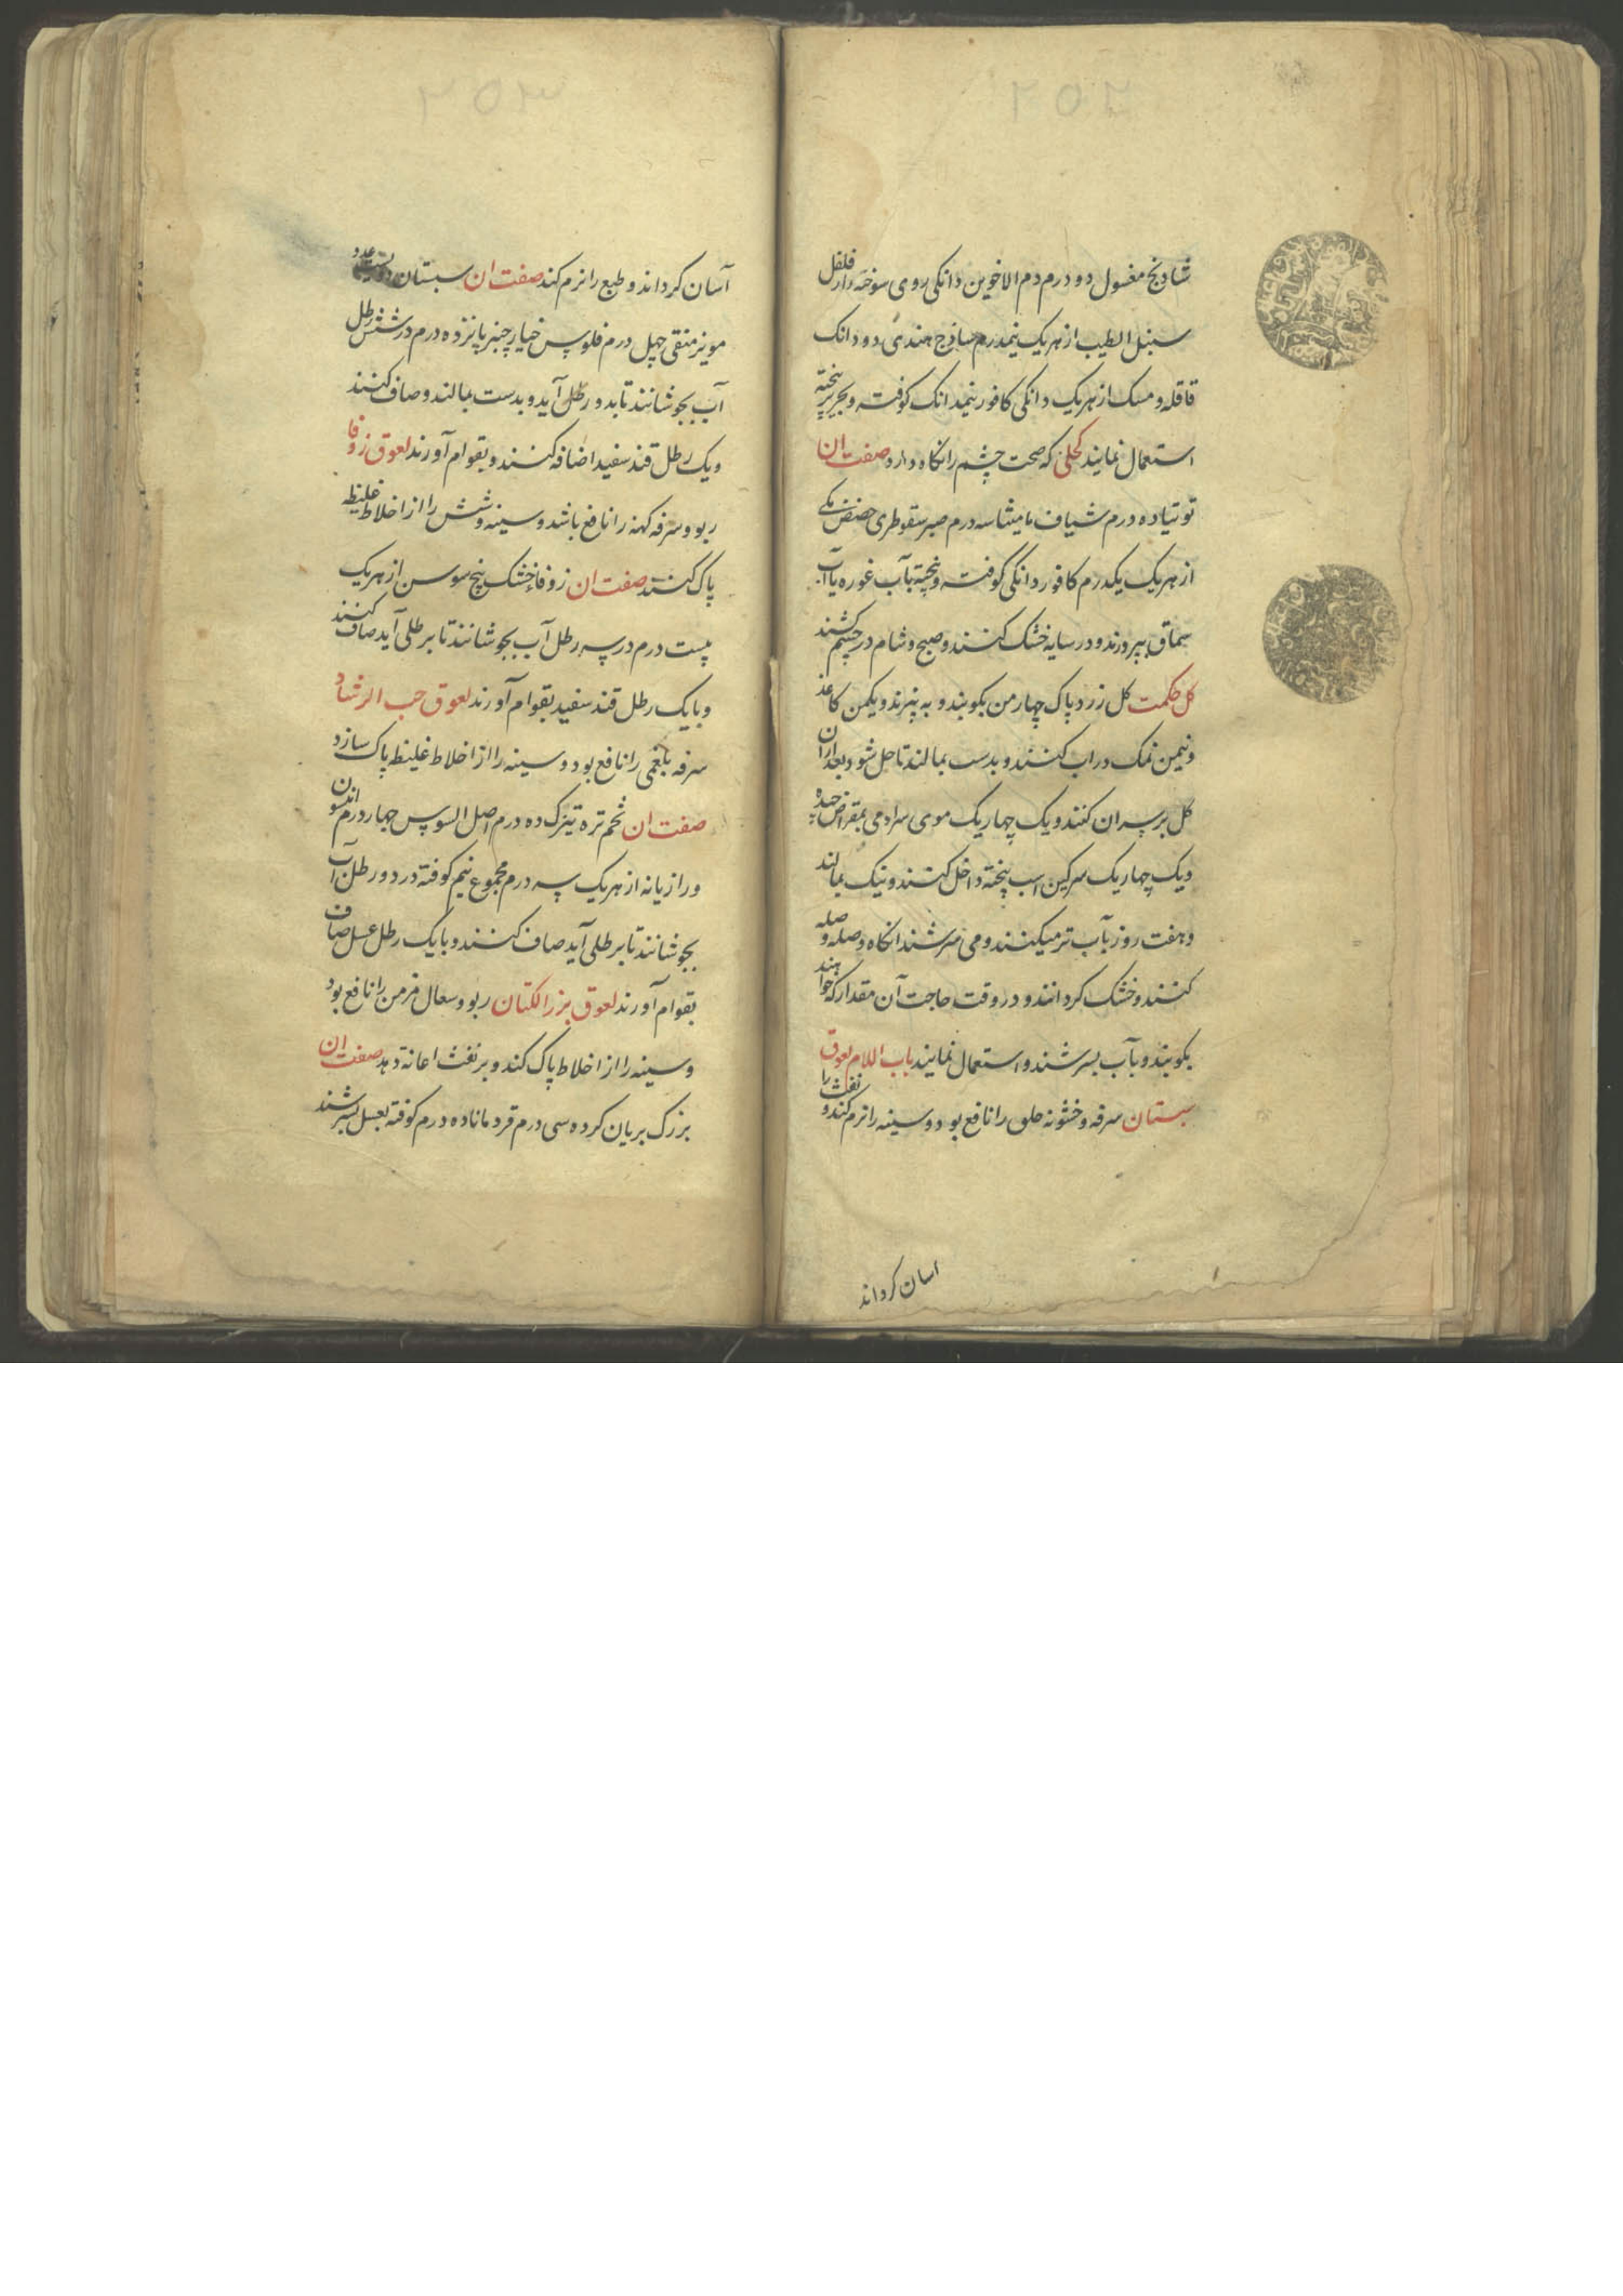 ۲۵۲
شادنج مغسول دو درم دم الاخوین دانکی روی سوخته دار فلفل
سنبل الطیب از هر یک نیمدرم ساذج هندی دو دانک
قاقله و مسک از هر یک دانکی کافور نیمدانک کوفته و بحریر پیخته
استعمال نمایند کحلی که صحت چشم را نکاه دارد صفت ان
توتیا ده درم شیاف مامیثا سه درم صبر سقوطری حضض مکی
از هر یک یکدرم کافور دانکی کوفته و پیخته بآب غوره یا آب
سماق بپرورند و در سایه خشک کنند و صبح و شام در چشم کشند
کل حکمت کل زرد پاک چهار من بکوبند و به پیزند و یکمن کاغذ
و نیمن نمک در اب کنند و بدست بمالند تا حل شود بعد ازان
کل بر سر ان کنند و یک چهاریک موی سر ادمی بمقراض چیده
و یک چهاریک سرکین اسب پیخته داخل کنند و نیک بمالند
و هفت روز بآب تر میکنند و می سرشند انکاه وصله وصله
کنند و خشک کردانند و در وقت حاجت آن مقدار که خواهند
بکوبند و بآب بسرشند و استعمال نمایند باب اللام لعوق
سبستان سرفه و خشونه حلق را نافع بود و سینه را نرم کند و نفث را
اسان کرداند
۲۵۳
آسان کرداند و طبع را نرم کند صفت ان سبستان دویست عدد
مویز منقی چهل درم فلوس خیارچنبر پانزده درم در شش رطل
آب بجوشانند تا بدو رطل آید و بدست بمالند و صاف کنند
و یک رطل قند سفید اضافه کنند و بقوام آورند لعوق زوفا
ربو و سرفه کهنه را نافع باشد و سینه و شش را از اخلاط غلیظه
پاک کند صفت ان زوفاء خشک بیخ سوسن از هر یک
بیست درم در سه رطل آب بجوشانند تا برطلی آید صاف کنند
و با یک رطل قند سفید بقوام آورند لعوق حب الرشاد
سرفه بلغمی را نافع بود و سینه را از اخلاط غلیظ پاک سازد
صفت ان تخم تره تیزک ده درم اصل السوس چهار درم انیسون
و رازیانه از هر یک سه درم مجموع نیم کوفته در دو رطل آب
بجوشانند تا برطلی آید صاف کنند و با یک رطل عسل صاف
بقوام آورند لعوق بزر الکتان ربو و سعال مزمن را نافع بود
و سینه را از اخلاط پاک کند و بر نفث اعانة دهد صفت ان
بزرک بریان کرده سی درم قردمانا ده درم کوفته بعسل بسرشند